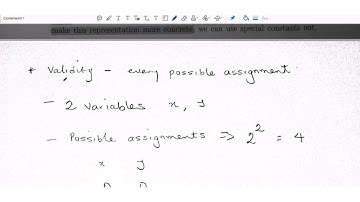 Comment
make this representation more concrete, we can use special constants not,
* Validity - every possible assignment.
- 2 variables x, y
- Possible assignments => 2^2 = 4
x y
0 0